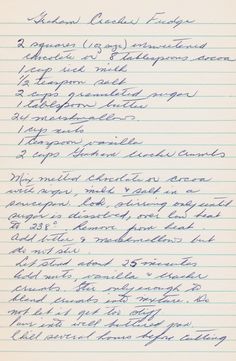 Graham Cracker Fudge
2 squares (1 oz. size) unsweetened
chocolate or 8 tablespoons cocoa
1 cup rich milk
1/2 teaspoon salt
2 cups granulated sugar
1 tablespoon butter
24 marshmallows
1 cup nuts
1 teaspoon vanilla
2 cups Graham cracker crumbs
Mix melted chocolate or cocoa
with sugar, milk & salt in a
saucepan. Cook, stirring only until
sugar is dissolved, over low heat
to 238°. Remove from heat.
Add butter & marshmallows but
do not stir.
Let stand about 25 minutes
Add nuts, vanilla & cracker
crumbs. Stir only enough to
blend crumbs into mixture. Do
not let it get too stiff
Pour into well buttered pan.
Chill several hours before cutting